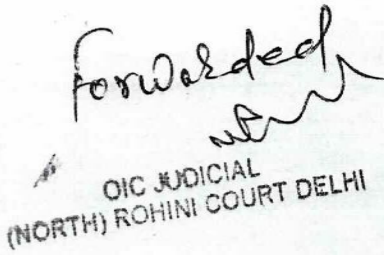 Forwarded
OIC JUDICIAL
(NORTH) ROHINI COURT DELHI